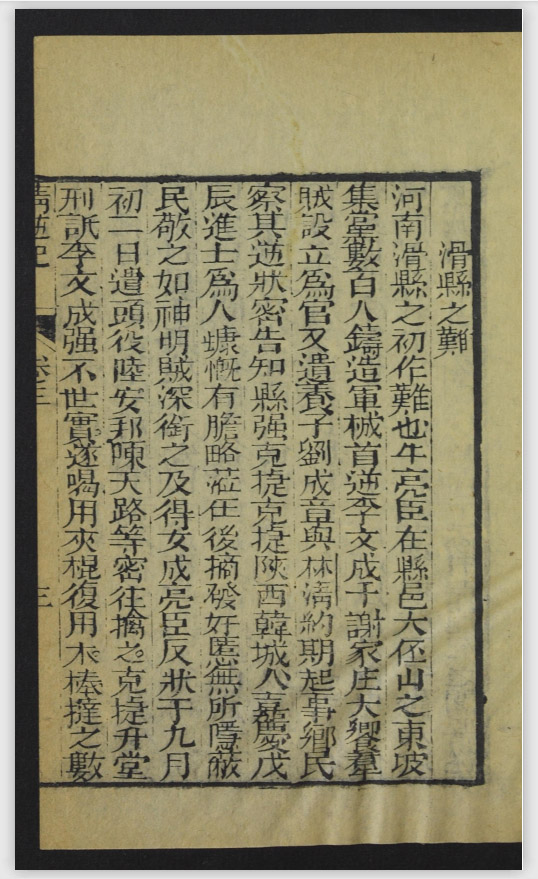 滑縣之難
河南滑縣之初作難也牛亮臣在縣邑大伾山之東坡
集黨數百人鑄造軍械首逆李文成于謝家庄大饗羣
賊設立爲官又遺養子劉成章與林淸約期起事鄉民
察其逆狀密告知縣强克捷克捷陝西韓城人嘉慶戊
辰進士爲人慷慨有膽略蒞任後摘發奸慝無所隱蔽
民敬之如神明賊深銜之及得文成亮臣反狀于九月
初二日遣頭役陸安邦陳天路等密往擒之克捷升堂
刑訊李文成强不世實遂喝用夾棍復用木棒撻之數
靖逆記 卷三 三